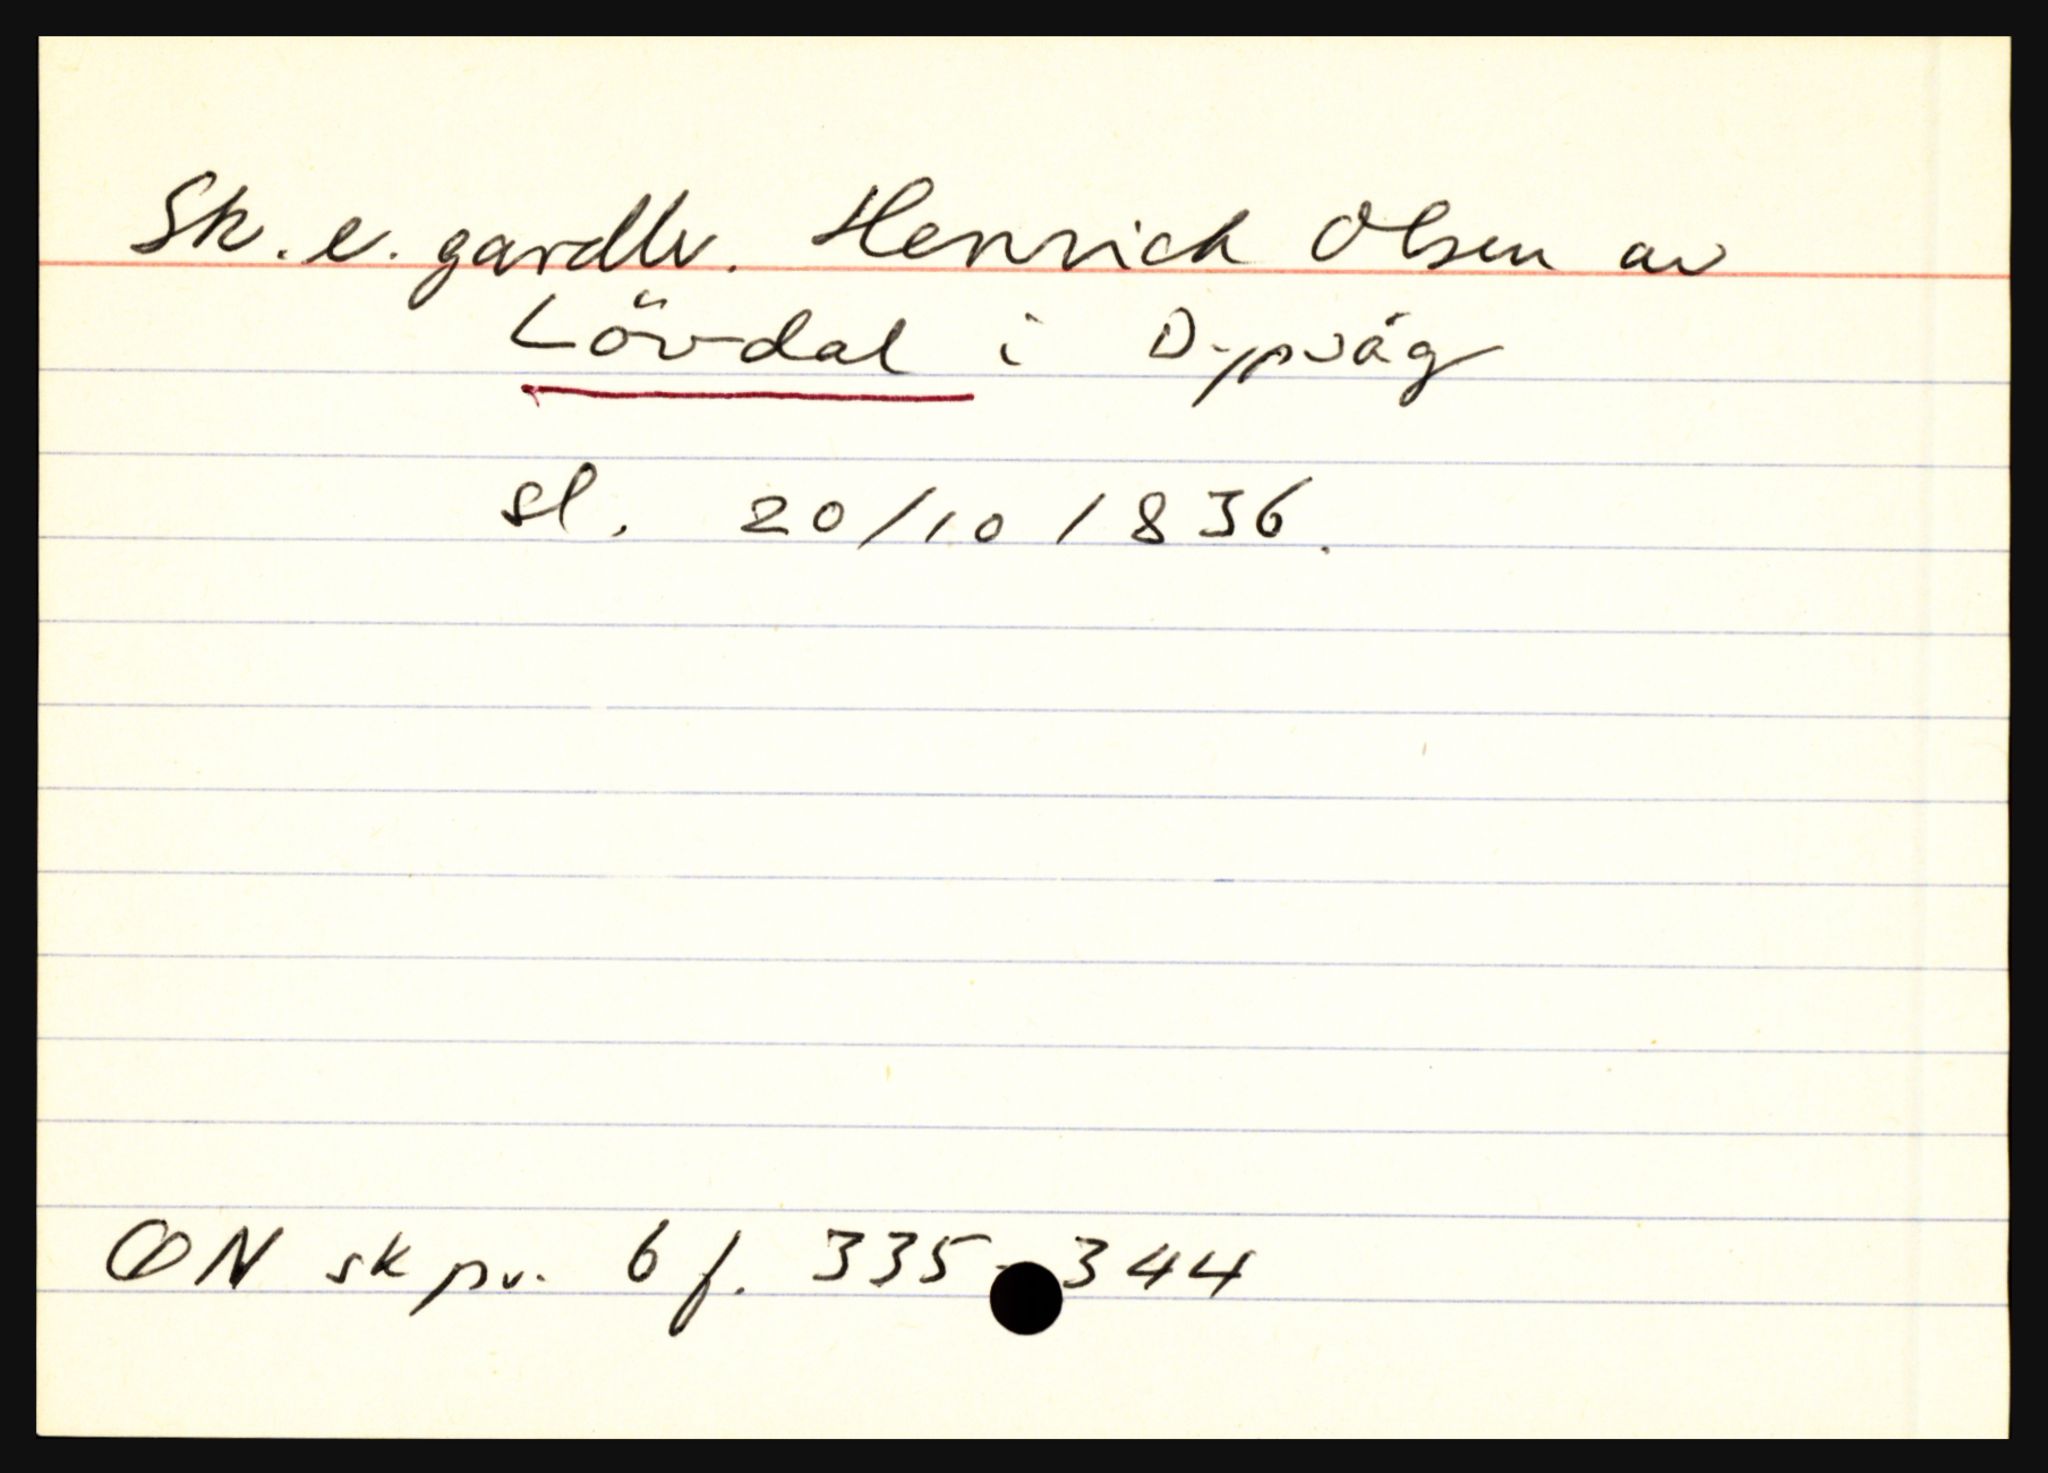 Sk. e. gardbr. Henrich Olsen av
Lövdal i Dypvåg
sl. 20/10 1836.
ØN sk pr. 6 f. 335-344